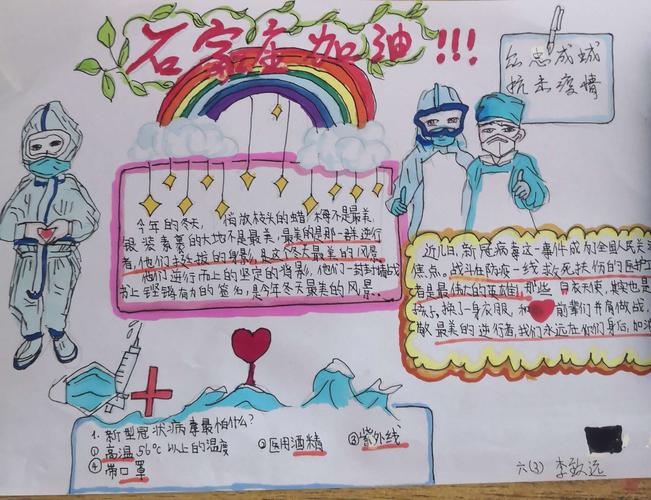 石家庄加油!!!
众志成城
抗击疫情
今年的冬天,俏放枝头的蜡梅不是最美,
银装素裹的大地不是最美,最美的是那一群逆行
者,他们挺拔的身影,是这个冬天最美的风景
他们逆行而上的坚定的背影,他们一封封请战
书上铿锵有力的签名,是今年冬天最美的风景.
近几日,新冠病毒这一事件成为全国人民关
焦点。战斗在防疫一线救死扶伤的医护工
者是最伟大的英雄们,那些白衣天使,其实也是
孩子,换了一身衣服,和前辈们并肩做战,
敬最美的逆行者,我们永远在你们身后,加油
1.新型冠状病毒最怕什么?
①高温56℃以上的温度 ②医用酒精 ③紫外线
④带口罩
六(3) 李歆远